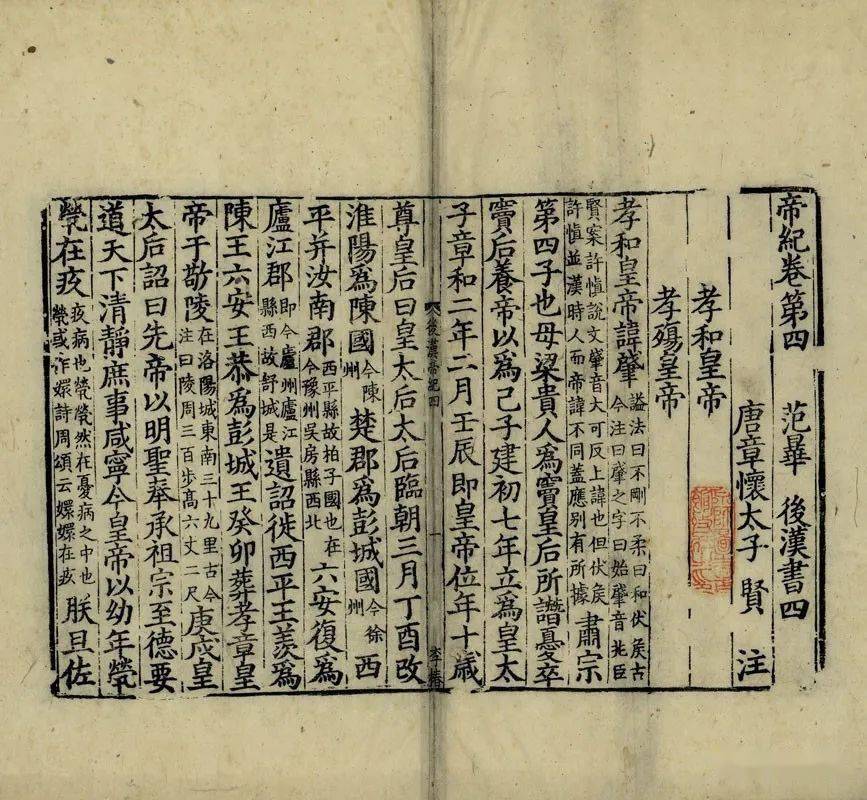 帝紀卷第四　范曄　後漢書四
唐章懷太子　賢　注
孝和皇帝
孝殤皇帝
孝和皇帝諱肈謚法曰不剛不柔曰和伏矦古今注曰肈之字曰始肈音兆臣
賢案許慎說文肈音大可反上諱也但伏矦許慎並漢時人而帝諱不同蓋應別有所據肅宗
第四子也母梁貴人爲竇皇后所譖憂卒
竇后養帝以爲己子建初七年立爲皇太
子章和二年二月壬辰即皇帝位年十歲
後漢帝紀四　一　李椿
尊皇后曰皇太后太后臨朝三月丁酉改
淮陽爲陳國今陳州楚郡爲彭城國今徐州西
平并汝南郡西平縣故柏子國也在今豫州吳房縣西北六安復爲
廬江郡即今廬州廬江縣西故舒城是遺詔徙西平王羨爲
陳王六安王恭爲彭城王癸卯葬孝章皇
帝于敬陵在洛陽城東南三十九里古今注曰陵周三百步高六丈二尺庚戌皇
太后詔曰先帝以明聖奉承祖宗至德要
道天下清靜庶事咸寧今皇帝以幼年煢
煢在疚疚病也煢煢然在憂病之中也煢或作嬛詩周頌云嬛嬛在疚朕旦佐